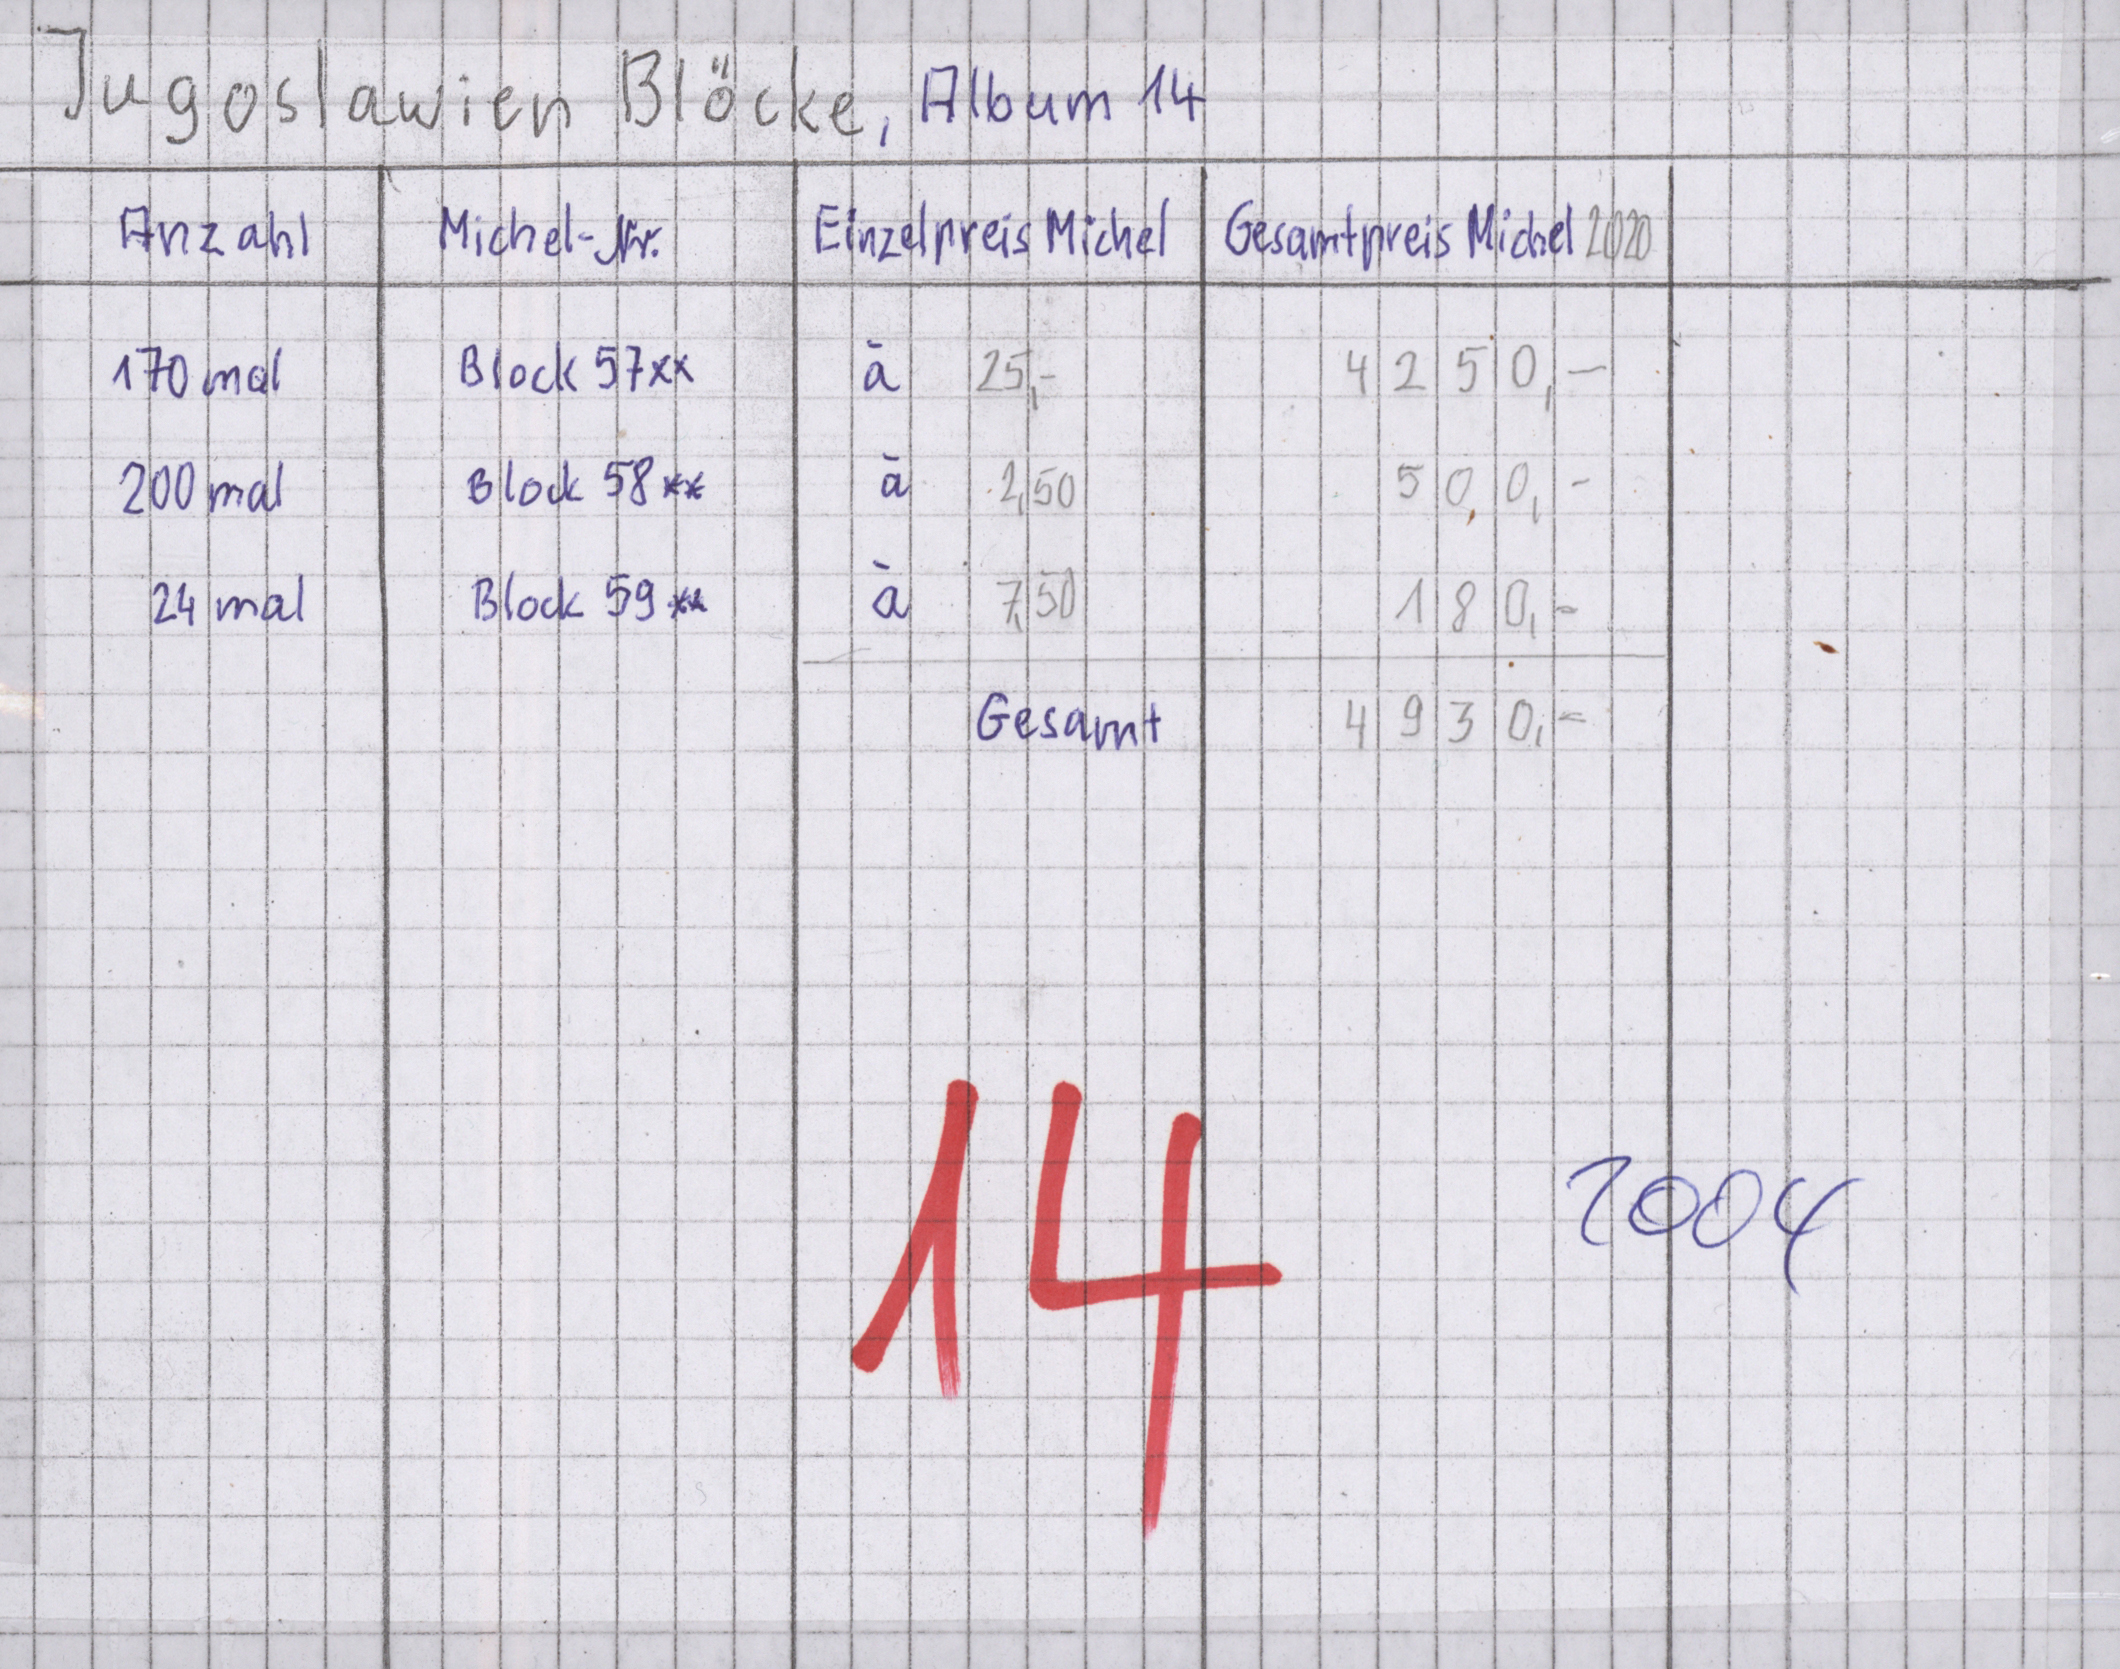 Jugoslawien Blöcke, Album 14
Anzahl Michel-Nr. Einzelpreis Michel Gesamtpreis Michel 2020
170 mal Block 57xx à 25,- 4250,-
200 mal Block 58xx à 2,50 500,-
24 mal Block 59xx à 7,50 180,-
Gesamt 4930,-
14
2004